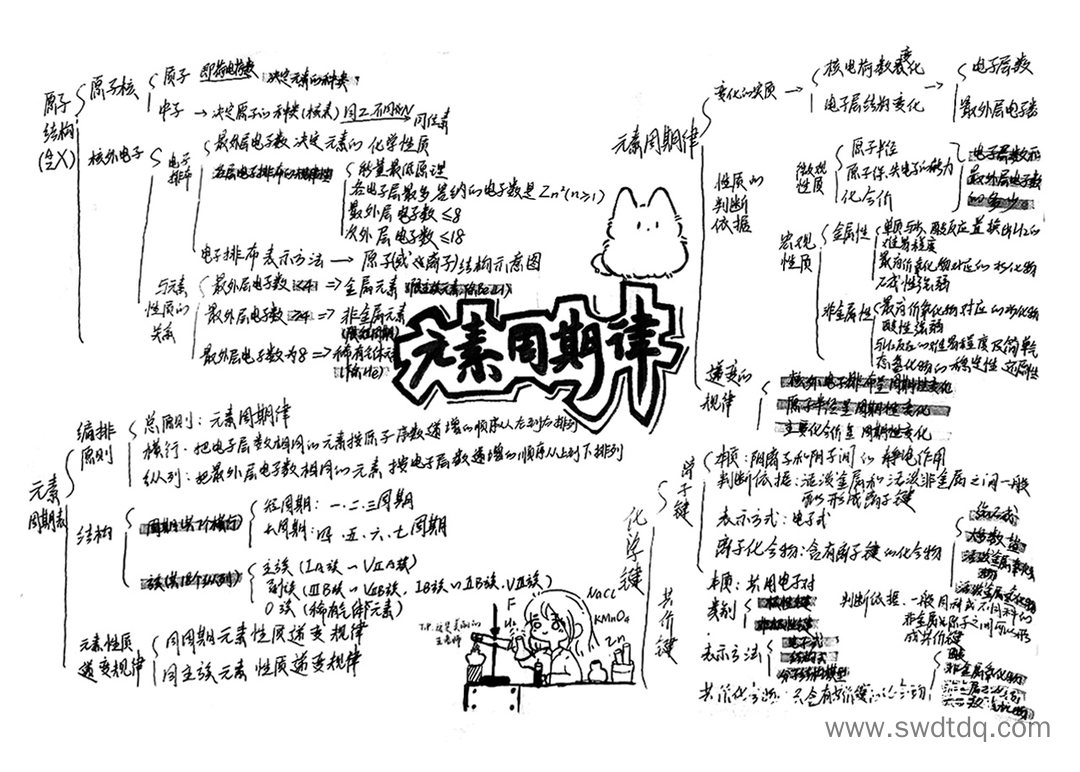 元素周期律
原子
结构
原子核
质子
即核电荷数
决定元素的种类
中子
决定原子的种类(核素)
同Z不同N
同位素
核外电子
电子
排布
最外层电子数决定元素的化学性质
能量最低原理
各电子层最多容纳的电子数是2n²(n≥1)
最外层电子数≤8
次外层电子数≤18
电子排布表示方法
原子(或离子)结构示意图
与元素
性质的
关系
最外层电子数<4
金属元素
最外层电子数≥4
非金属元素
最外层电子数为8
稀有气体元素
(除He)
元素
周期表
编排
原则
总原则:元素周期律
横行:把电子层数相同的元素按原子序数递增的顺序从左到右排列
纵列:把最外层电子数相同的元素按电子层数递增的顺序从上到下排列
结构
周期(共7个横行)
短周期:一.二.三周期
长周期:四.五.六.七周期
族(共18个纵列)
主族(ⅠA族~ⅦA族)
副族(ⅢB族~ⅦB族、ⅠB族~ⅡB族、Ⅷ族)
0族(稀有气体元素)
元素性质
递变规律
同周期元素性质递变规律
同主族元素性质递变规律
元素周期律
变化的实质
核电荷数变化
电子层结构变化
电子层数
最外层电子数
性质的
判断
依据
微观
性质
原子半径
原子得、失电子的能力
化合价
电子层数和
最外层电子数
的多少
宏观
性质
金属性
单质与水、酸反应置换出H₂的
难易程度
最高价氧化物对应的水化物
碱性强弱
非金属性
最高价氧化物对应的水化物
酸性强弱
与H₂反应的难易程度及简单气
态氢化物的稳定性、还原性
递变的
规律
核外电子排布呈周期性变化
原子半径呈周期性变化
主要化合价呈周期性变化
化学键
离子键
本质:阴离子和阳离子间的静电作用
判断依据:活泼金属和活泼非金属之间一般
形成离子键
表示方式:电子式
离子化合物:含有离子键的化合物
大多数盐
共价键
本质:共用电子对
类别
极性键
非极性键
判断依据:一般同种或不同种的
非金属元素原子之间可以形
成共价键
表示方法
电子式
结构式
共价化合物:只含有共价键的化合物
酸
非金属氧化物
F
NaCl
KMnO₄
Zn
www.swdtdq.com